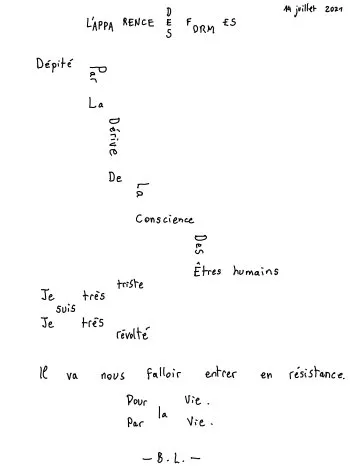 14 juillet 2021
L'APPARENCE DES FORMES
Dépité
Par
La
Dérive
De
La
Conscience
Des
Êtres humains
triste
Je très
suis
Je très
révolté
Il va nous falloir entrer en résistance.
Pour Vie.
la
Par Vie.
— B. L. —